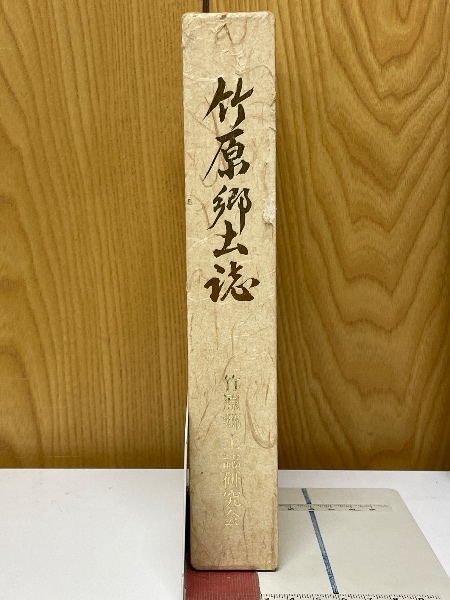 竹原郷土誌
竹原郷土誌研究会